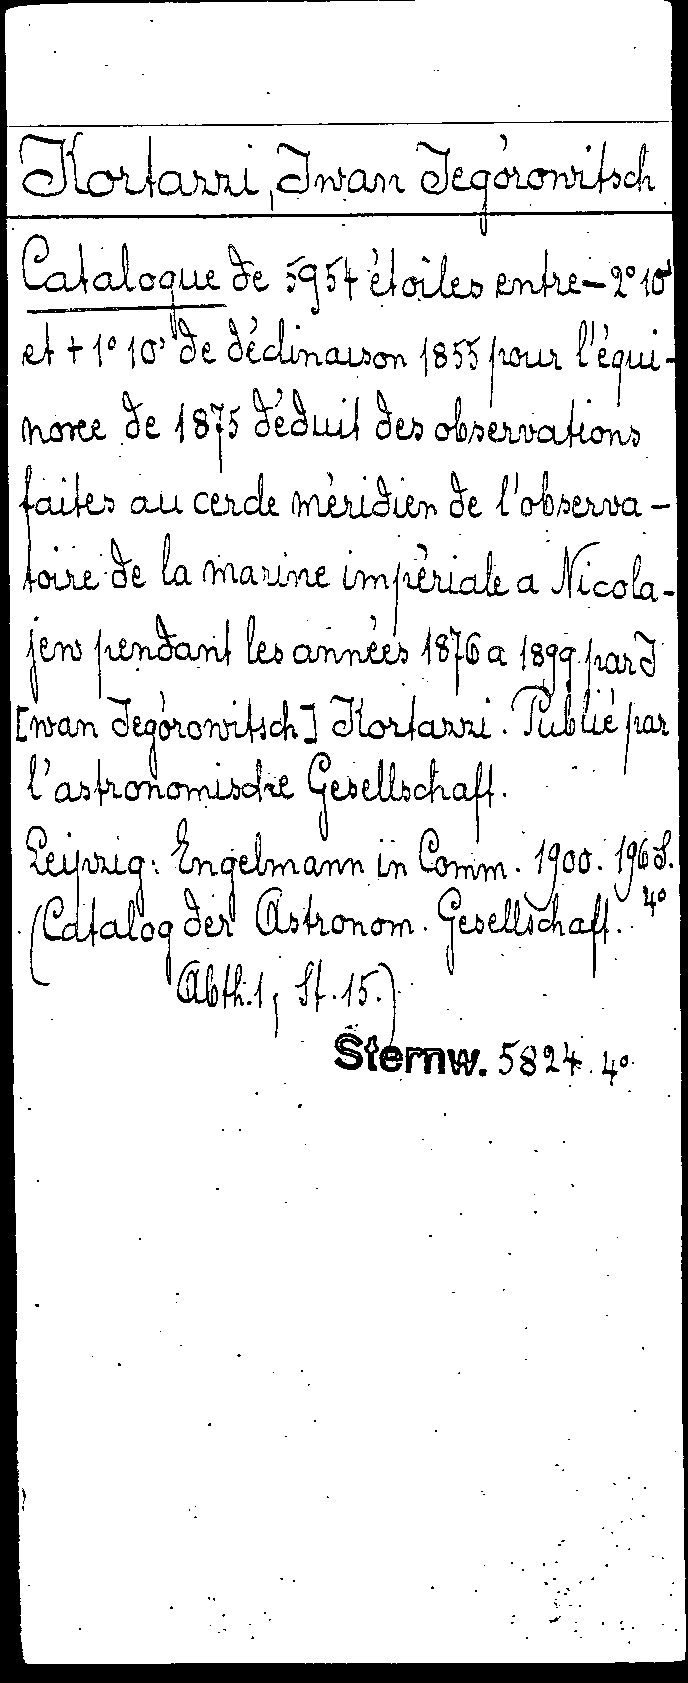 Kortazzi, Iwan Jegórowitsch
Catalogue de 5954 étoiles entre – 2° 10'
et + 1° 10' de déclinaison 1855 pour l'équi-
noxe de 1875 déduit des observations
faites au cercle méridien de l'observa-
toire de la marine impériale a Nicola-
jew pendant les années 1876 a 1899 par I
[wan Jegórowitsch] Kortazzi. Publié par
l'astronomische Gesellschaft.
Leipzig: Engelmann in Comm. 1900. 196 S.
4°
(Catalog der Astronom. Gesellschaft.
Abth. 1, St. 15.)
Sternw. 5824. 4°